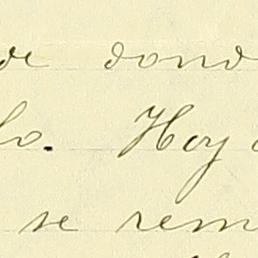 de dond
lo. Hoy
se rem